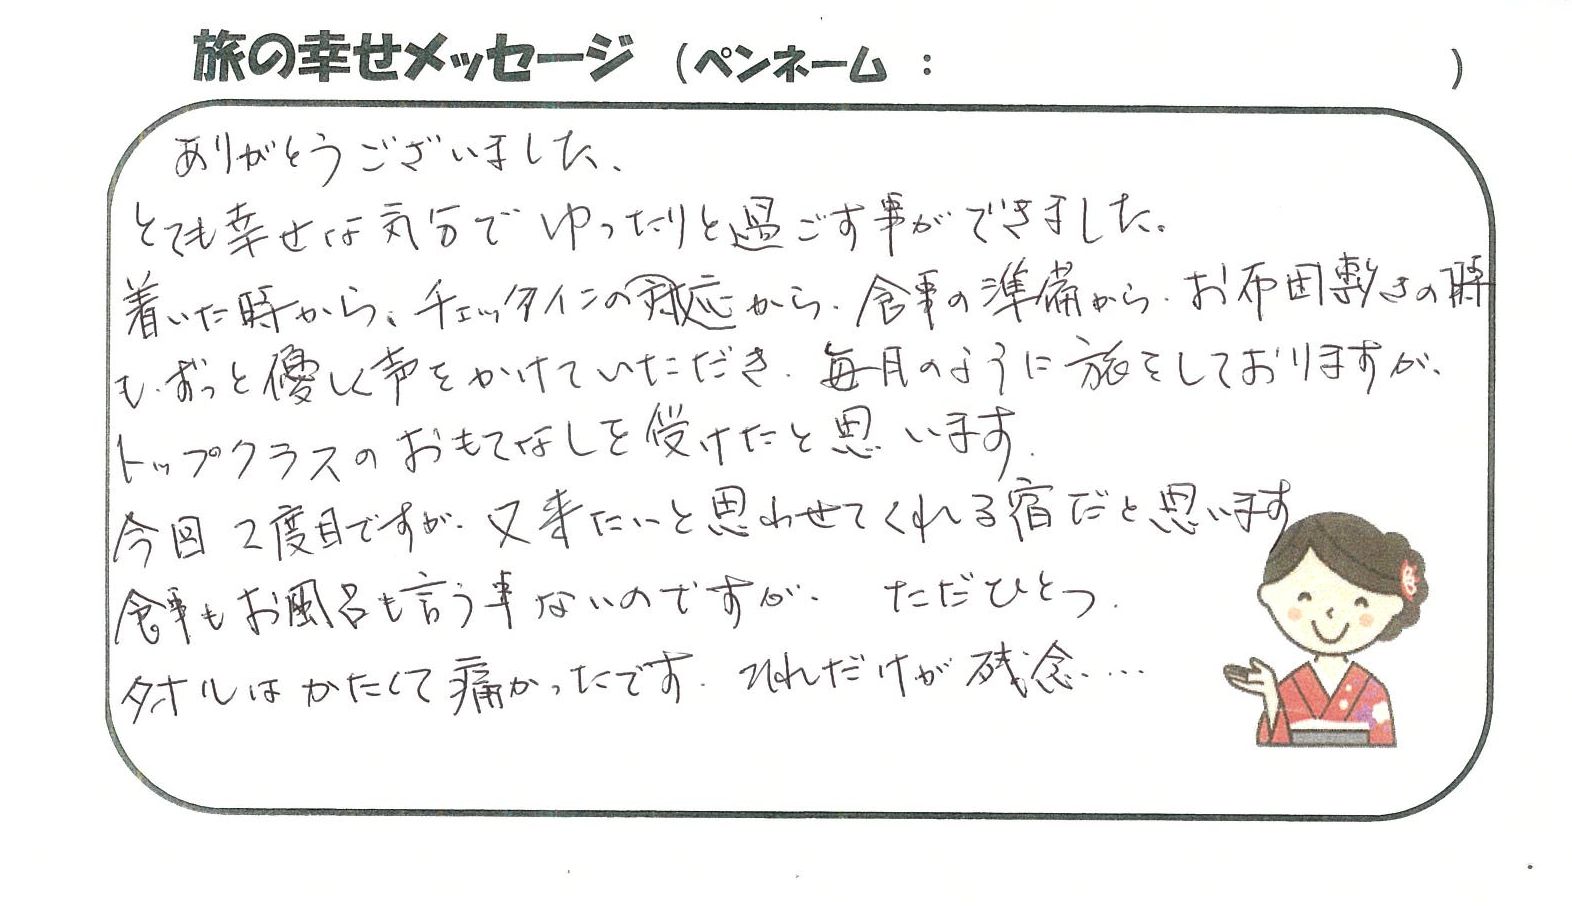 旅の幸せメッセージ （ペンネーム ： ）
ありがとうございました、
とても幸せな気分で ゆったりと過ごす事ができました。
着いた時から、チェックインの対応から、食事の準備から、お布団敷きの時
も、ずっと優しく声をかけていただき、毎月のように旅をしておりますが、
トップクラスのおもてなしを受けたと思います．
今回 2度目ですが、又来たいと思わせてくれる宿だと思います
食事もお風呂も言う事ないのですが、 ただひとつ．
タオルはかたくて痛かったです． それだけが残念....